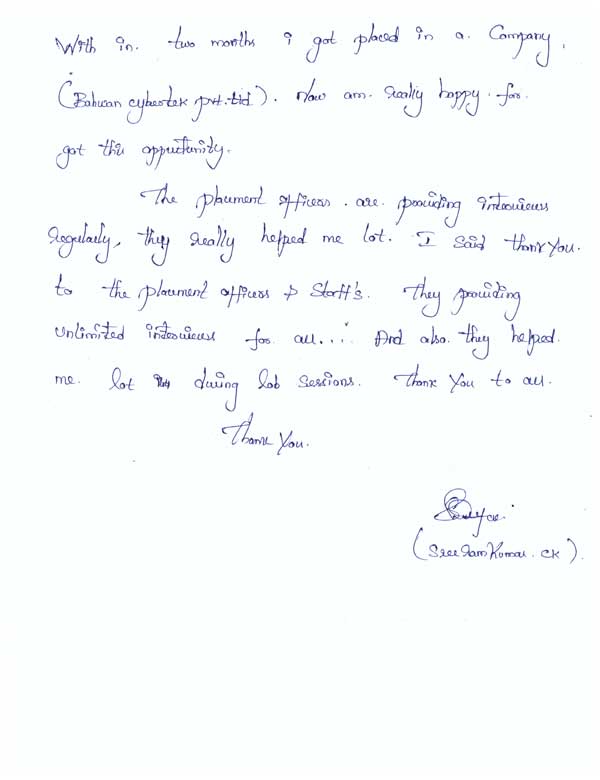 With in. two months i got placed in a Company.
(Bahwan cybertek pvt.ltd). Now am really happy. for.
got this oppurtunity.
The placement officers. are. providing interviews
regularly, they really helped me lot. I said thank You.
to the placement officers & Staff's. They providing
unlimited interviews for all.... And also. they helped.
me. lot during lab sessions. Thank You to all.
Thank You.
(Sree Ram Kumar. CK).